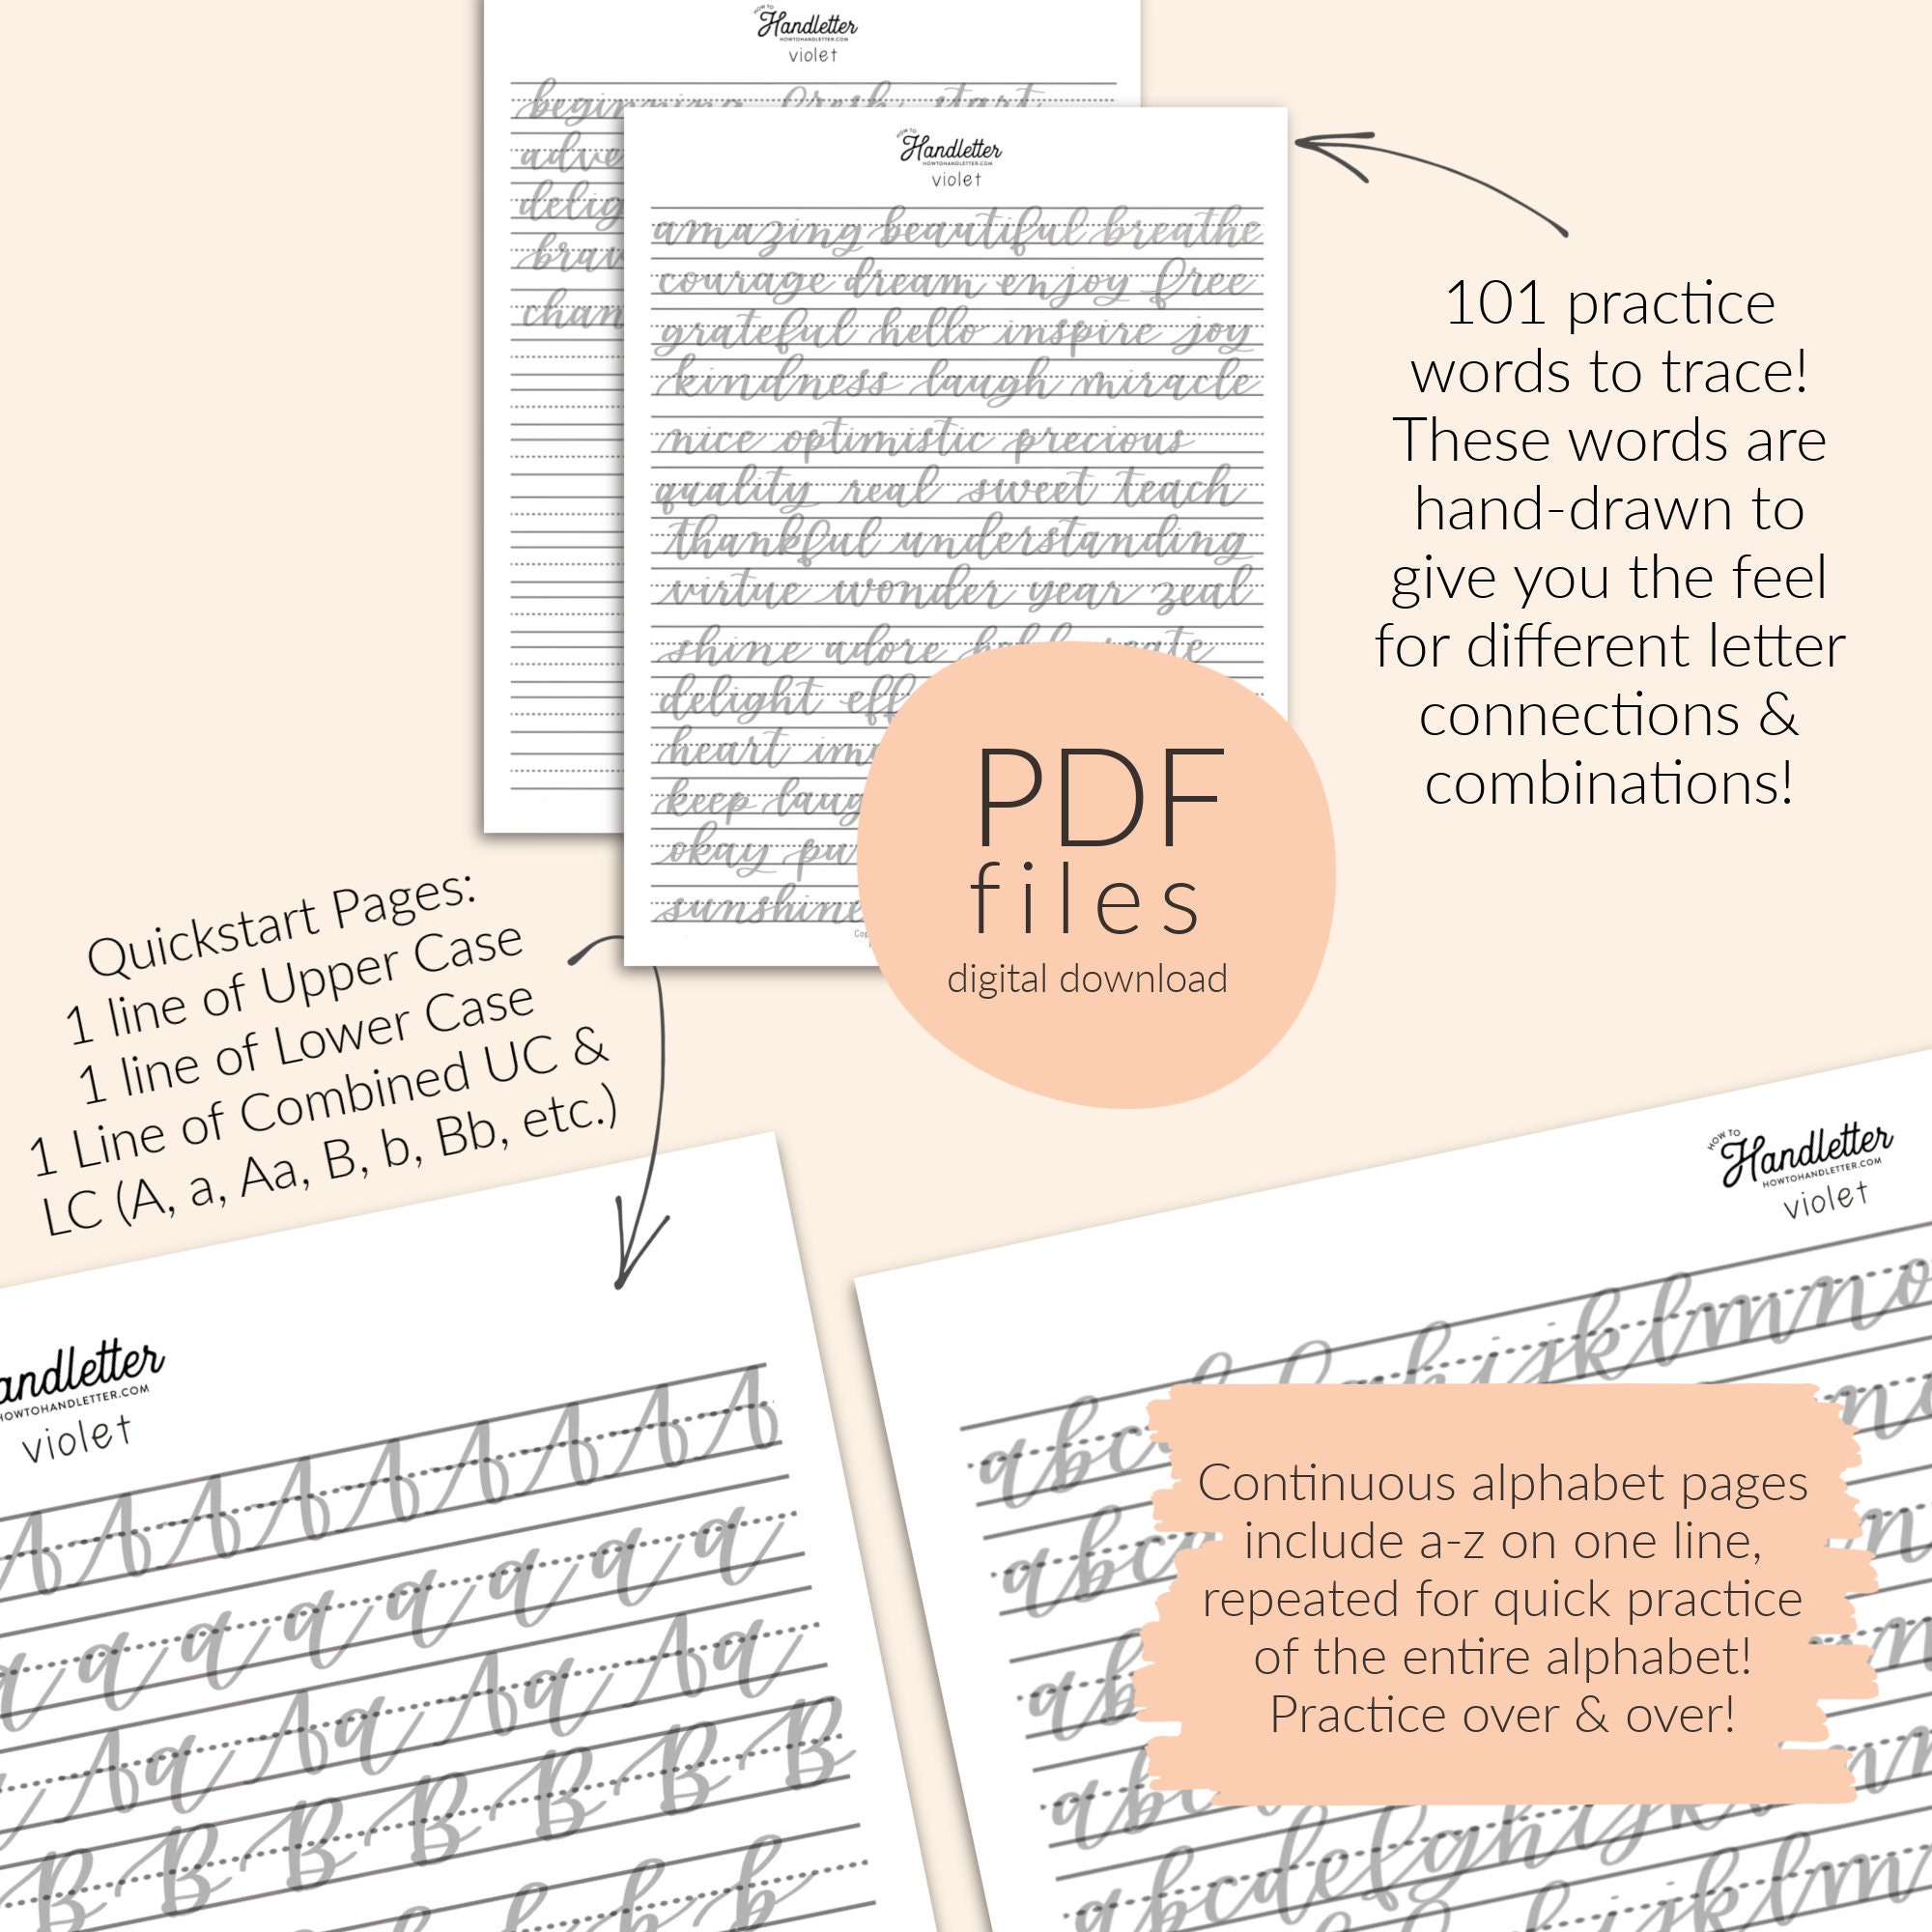 HOW TO
Handletter
HOWTOHANDLETTER.COM
violet
beginning fresh start
HOW TO
Handletter
HOWTOHANDLETTER.COM
violet
amazing beautiful breathe
courage dream enjoy free
grateful hello inspire joy
kindness laugh miracle
nice optimistic precious
quality real sweet teach
thankful understanding
virtue wonder year zeal
shine adore
delight
heart
keep
okay
sunshine
101 practice
words to trace!
These words are
hand-drawn to
give you the feel
for different letter
connections &
combinations!
PDF
files
digital download
Quickstart Pages:
1 line of Upper Case
1 line of Lower Case
1 Line of Combined UC &
LC (A, a, Aa, B, b, Bb, etc.)
andletter
HOWTOHANDLETTER.COM
violet
A A A A A A A A
a a a a a a a a
Aa Aa Aa Aa
B B B B B B B B
b b b b
HOW TO
Handletter
HOWTOHANDLETTER.COM
violet
Continuous alphabet pages
include a-z on one line,
repeated for quick practice
of the entire alphabet!
Practice over & over!
abcdefghijk